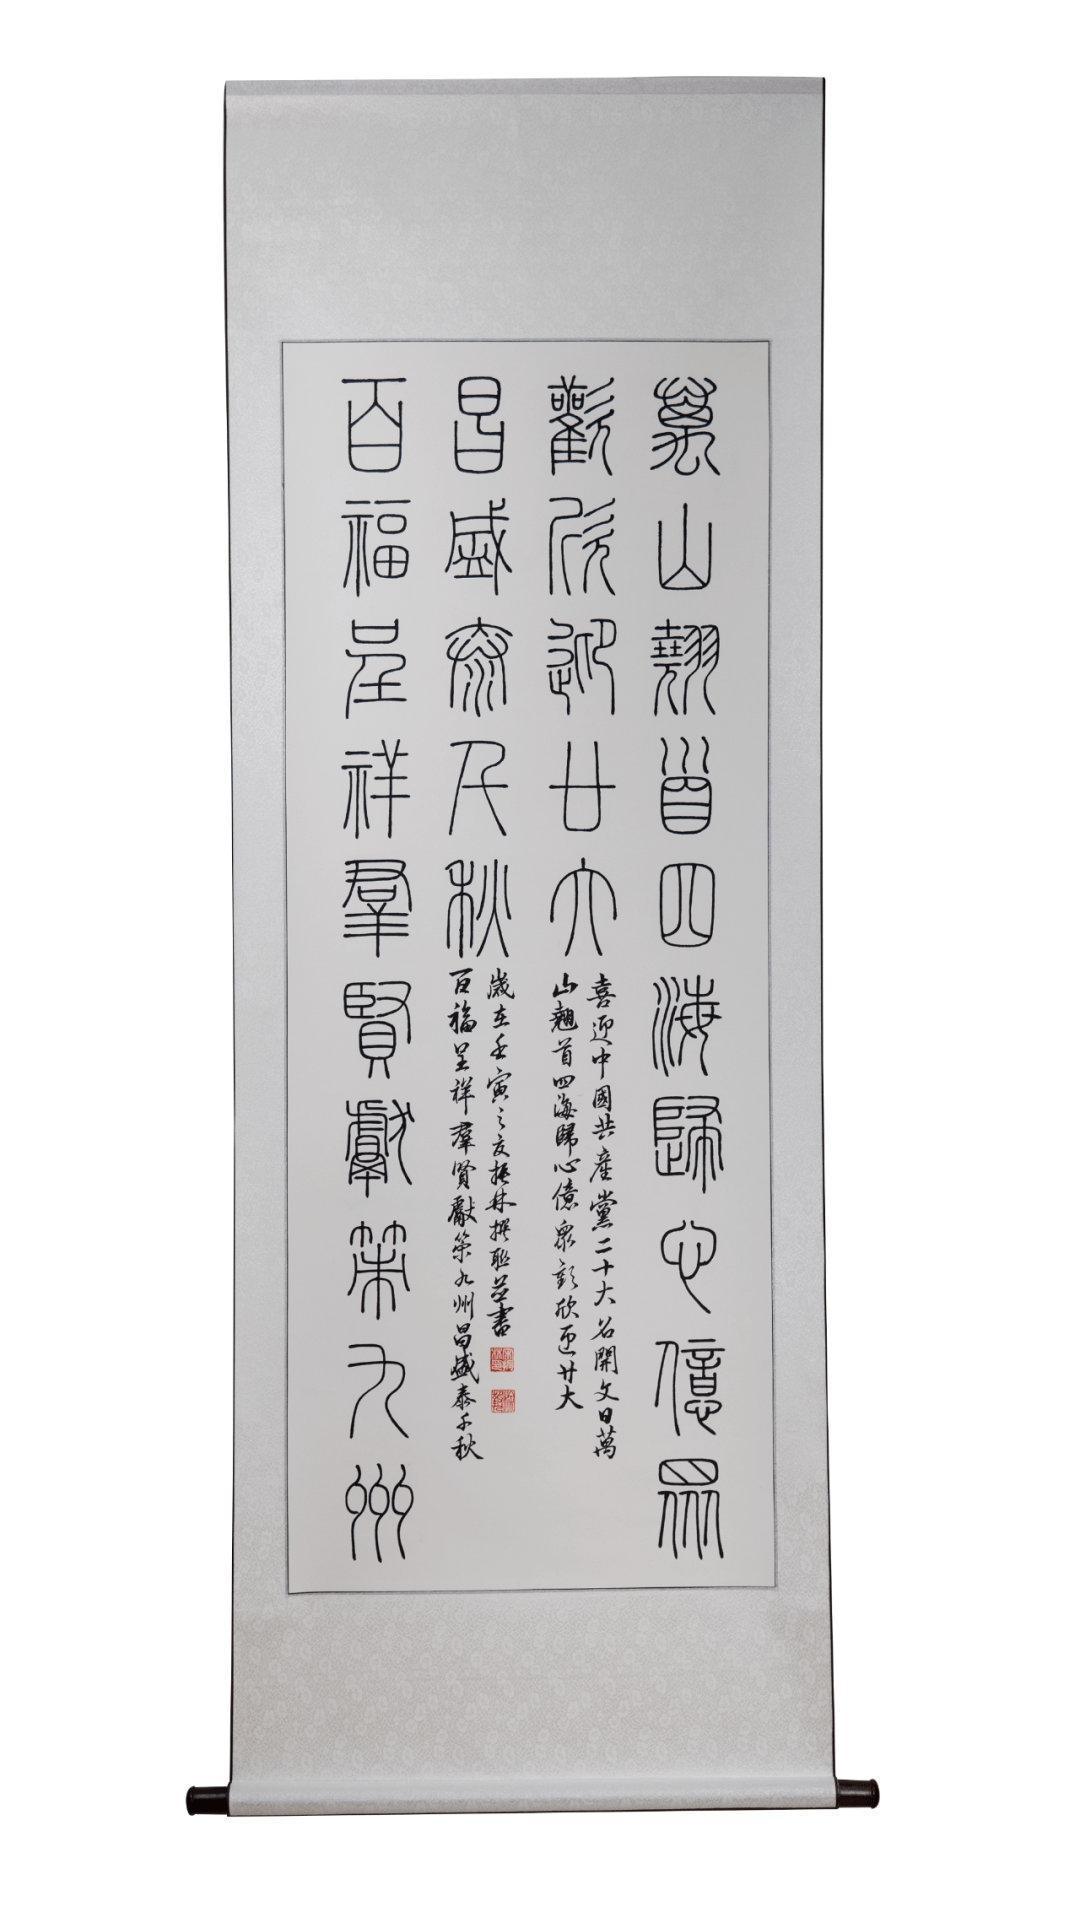 萬山翹首四海歸心億眾
歡欣迎廿大
喜迎中國共産黨二十大召開文曰萬
山翹首四海歸心億眾歡欣迎廿大
百福呈祥羣賢獻策九州
昌盛泰千秋
百福呈祥羣賢獻策九州昌盛泰千秋
歲在壬寅之夏振林撰聯並書